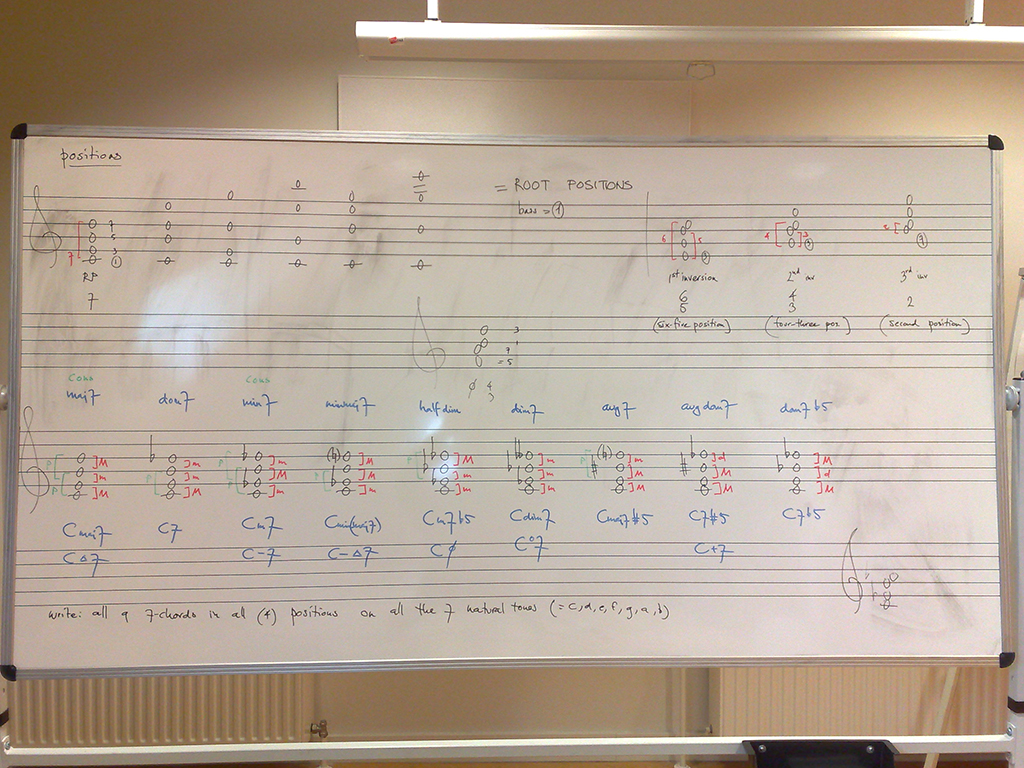 positions
= ROOT POSITIONS
bass = 1
7 5 3 1
7
RP
7
6 5
4 3
2
1st inversion
2nd inv
3rd inv
6
5
4
3
2
(six-five position)
(four-three pos.)
(second position)
3
1
7
= 5
ø 4
3
cons cons
maj7 dom7 min7 minmaj7 half dim dim7 aug7 aug dom7 dom7 b5
P P M m M
P m m M
P P m M m
(♮) M M m
P M m m
m m m
(♮) P m M M
d M M
M d M
Cmaj7 C7 Cm7 Cmin(maj7) Cm7b5 Cdim7 Cmaj7#5 C7#5 C7b5
C△7 C-7 C-△7 Cø C°7 C+7
write: all 9 7-chords in all (4) positions on all the 7 natural tones (= c, d, e, f, g, a, b)